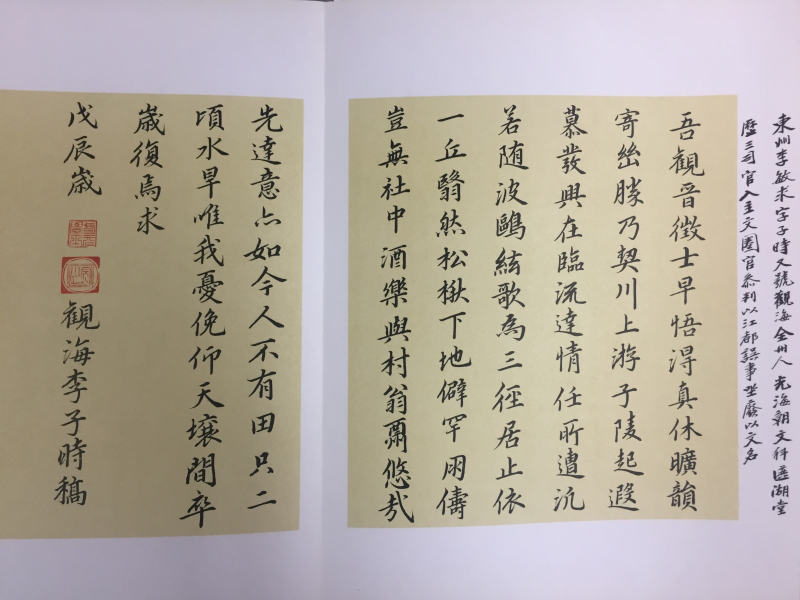 東州李敏求字子時又號觀海全州人 光海朝文科選湖堂
歷三司官入主文圈官參判以江都誤事坐廢以文名
吾觀晋徵士早悟淂真休曠韻
寄幽勝乃契川上游子陵起遐
慕發興在臨流達情任所遭汎
若随波鷗絃歌為三徑居止依
一丘翳然松楸下地僻罕朋儔
豈無社中酒樂與村翁爾悠哉
先達意亦如今人不有田只二
頃水旱唯我憂俛仰天壤間卒
歲復焉求
戊辰歲 觀海李子時稿